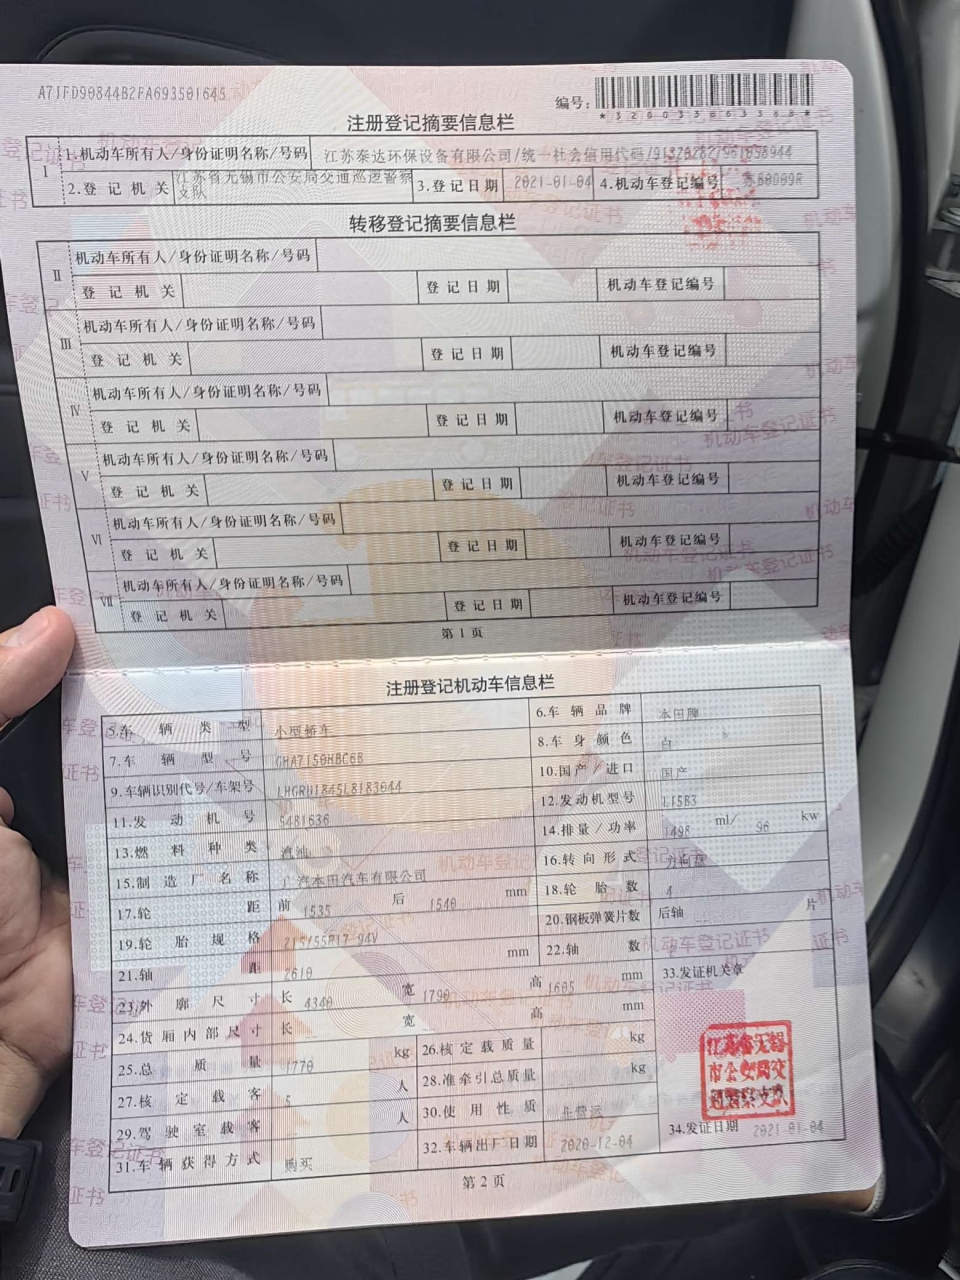 A71FD90844B2FA693501645
编号:
注册登记摘要信息栏
I 1.机动车所有人/身份证明名称/号码 江苏泰达环保设备有限公司/统一社会信用代码/
2.登记机关 江苏省无锡市公安局交通巡逻警察支队 3.登记日期 2021-01-04 4.机动车登记编号
转移登记摘要信息栏
II 机动车所有人/身份证明名称/号码
登记机关 登记日期 机动车登记编号
III 机动车所有人/身份证明名称/号码
登记机关 登记日期 机动车登记编号
IV 机动车所有人/身份证明名称/号码
登记机关 登记日期 机动车登记编号
V 机动车所有人/身份证明名称/号码
登记机关 登记日期 机动车登记编号
VI 机动车所有人/身份证明名称/号码
登记机关 登记日期 机动车登记编号
VII 机动车所有人/身份证明名称/号码
登记机关 登记日期 机动车登记编号
第1页
注册登记机动车信息栏
5.车辆类型 小型轿车 6.车辆品牌 本田牌
7.车辆型号 GHA7150HBC6B 8.车身颜色 白
9.车辆识别代号/车架号 LHGRU1845L8183044 10.国产/进口 国产
11.发动机号 5481636 12.发动机型号 L15B3
13.燃料种类 汽油 14.排量/功率 1498 ml/ 96 kw
15.制造厂名称 广汽本田汽车有限公司 16.转向形式 方向盘
17.轮距 前 1535 后 1540 mm 18.轮胎数 4
19.轮胎规格 215/55R17 94V 20.钢板弹簧片数 后轴 片
21.轴距 2610 mm 22.轴数
23.外廓尺寸 长 4340 宽 1790 高 1605 mm 33.发证机关章
24.货厢内部尺寸 长 宽 高 mm
25.总质量 1770 kg 26.核定载质量 kg
27.核定载客 5 人 28.准牵引总质量 kg
29.驾驶室载客 人 30.使用性质 非营运
31.车辆获得方式 购买 32.车辆出厂日期 2020-12-04 34.发证日期 2021-01-04
江苏省无锡
市公安局交
通巡逻警察支队
第2页